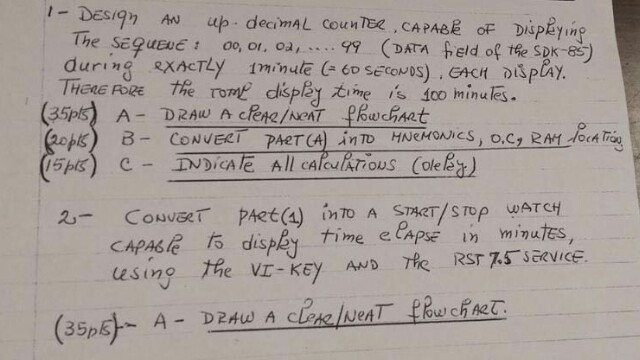 1- DESIGN AN up-decimal counter, CAPABLE OF DISPLAYING
The SEQUENE: 00, 01, 02, .... 99 (DATA field of the SDK-85)
during EXACTLY 1minute (= 60 SECONDS), EACH DISPLAY.
THEREFORE the total display time is 100 minutes.
(35pts) A - DRAW A clear/neat flowchart
(20pts) B - CONVERT PART(A) into MNEMONICS, O.C, RAM location
(15pts) C - INDICATE All CALCULATIONS (Delay)
2- CONVERT PART(1) into A START/STOP WATCH
CAPABLE to display time elapse in minutes,
using the VI-KEY AND the RST 7.5 SERVICE.
(35pts)- A - DRAW A CLEAR/NEAT flowCHART.